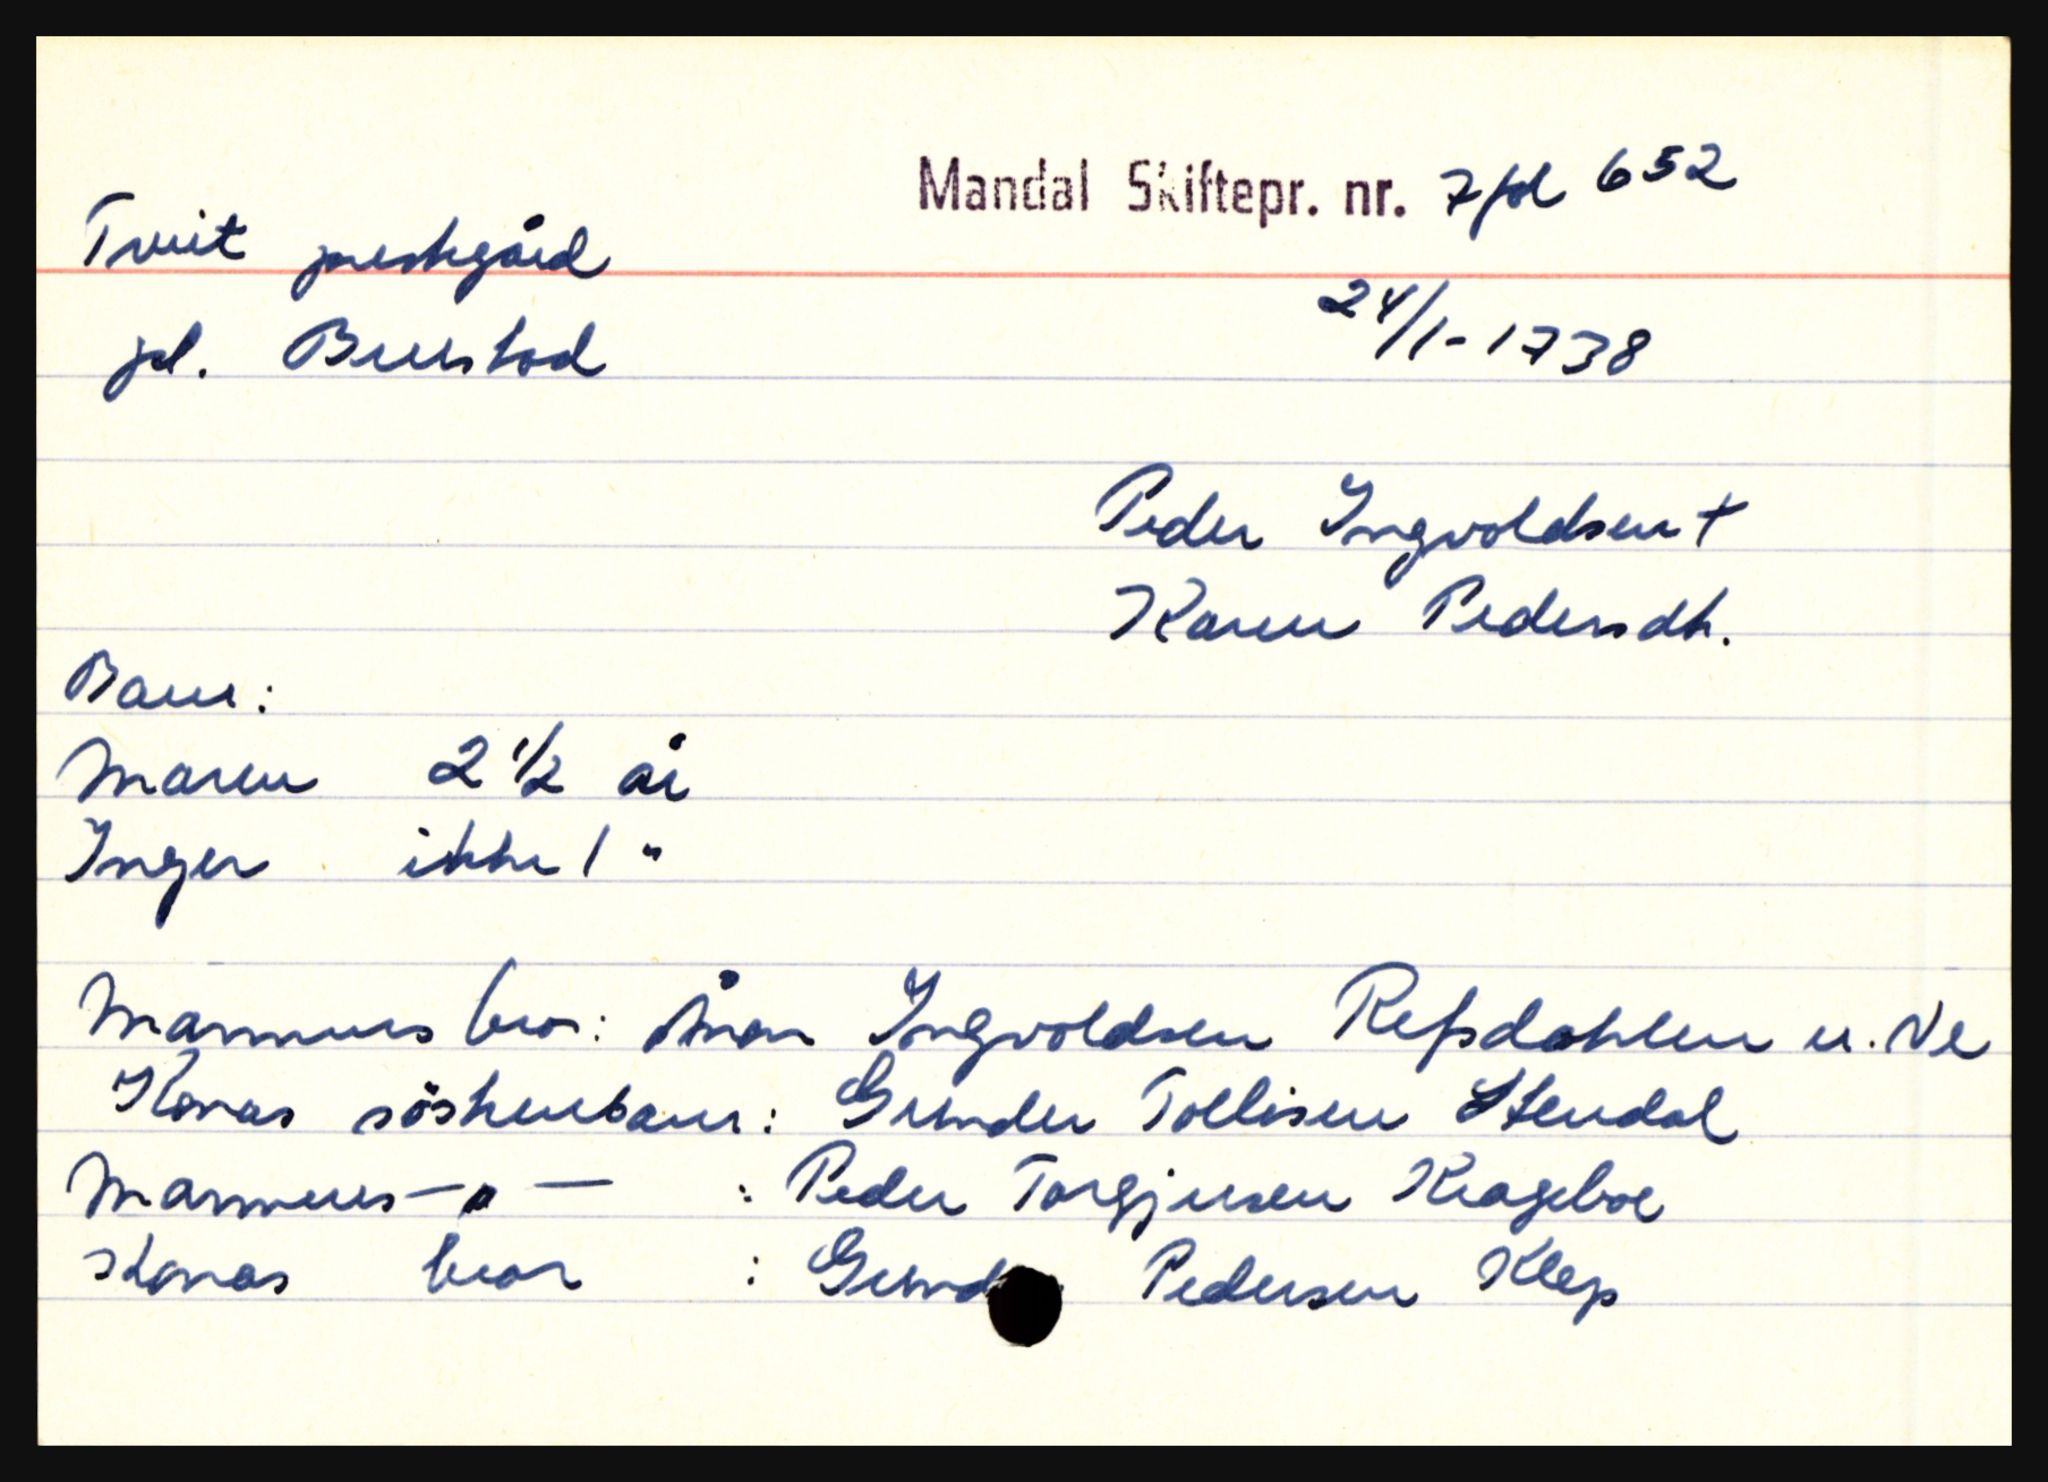 Mandal Skiftepr. nr. 7 fol 652
Tveit prestegård
pl. Buestad
24/1-1738
Peder Ingvoldsen +
Karen Pedersdt.
Barn:
Maren 2 1/2 år
Inger ikke 1 "
Mannens bror: Ånon Ingvoldsen Refsdahlen u. Ve
Konas søskenbarn: Gunder Tollisen Stendal
Mannens —"— : Peder Torgjusen Krageboe
Konas bror : Gund Pedersen Klep